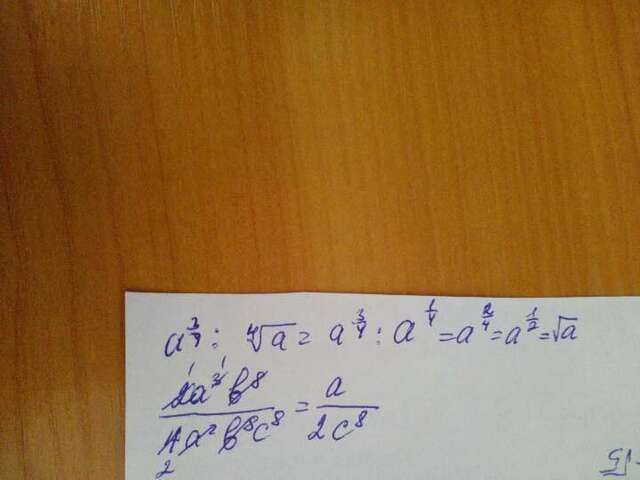 a^{3/4} : ∜a = a^{3/4} : a^{1/4} = a^{2/4} = a^{1/2} = √a
2a³b⁸ / 4a²b⁸c⁸ = a / 2c⁸